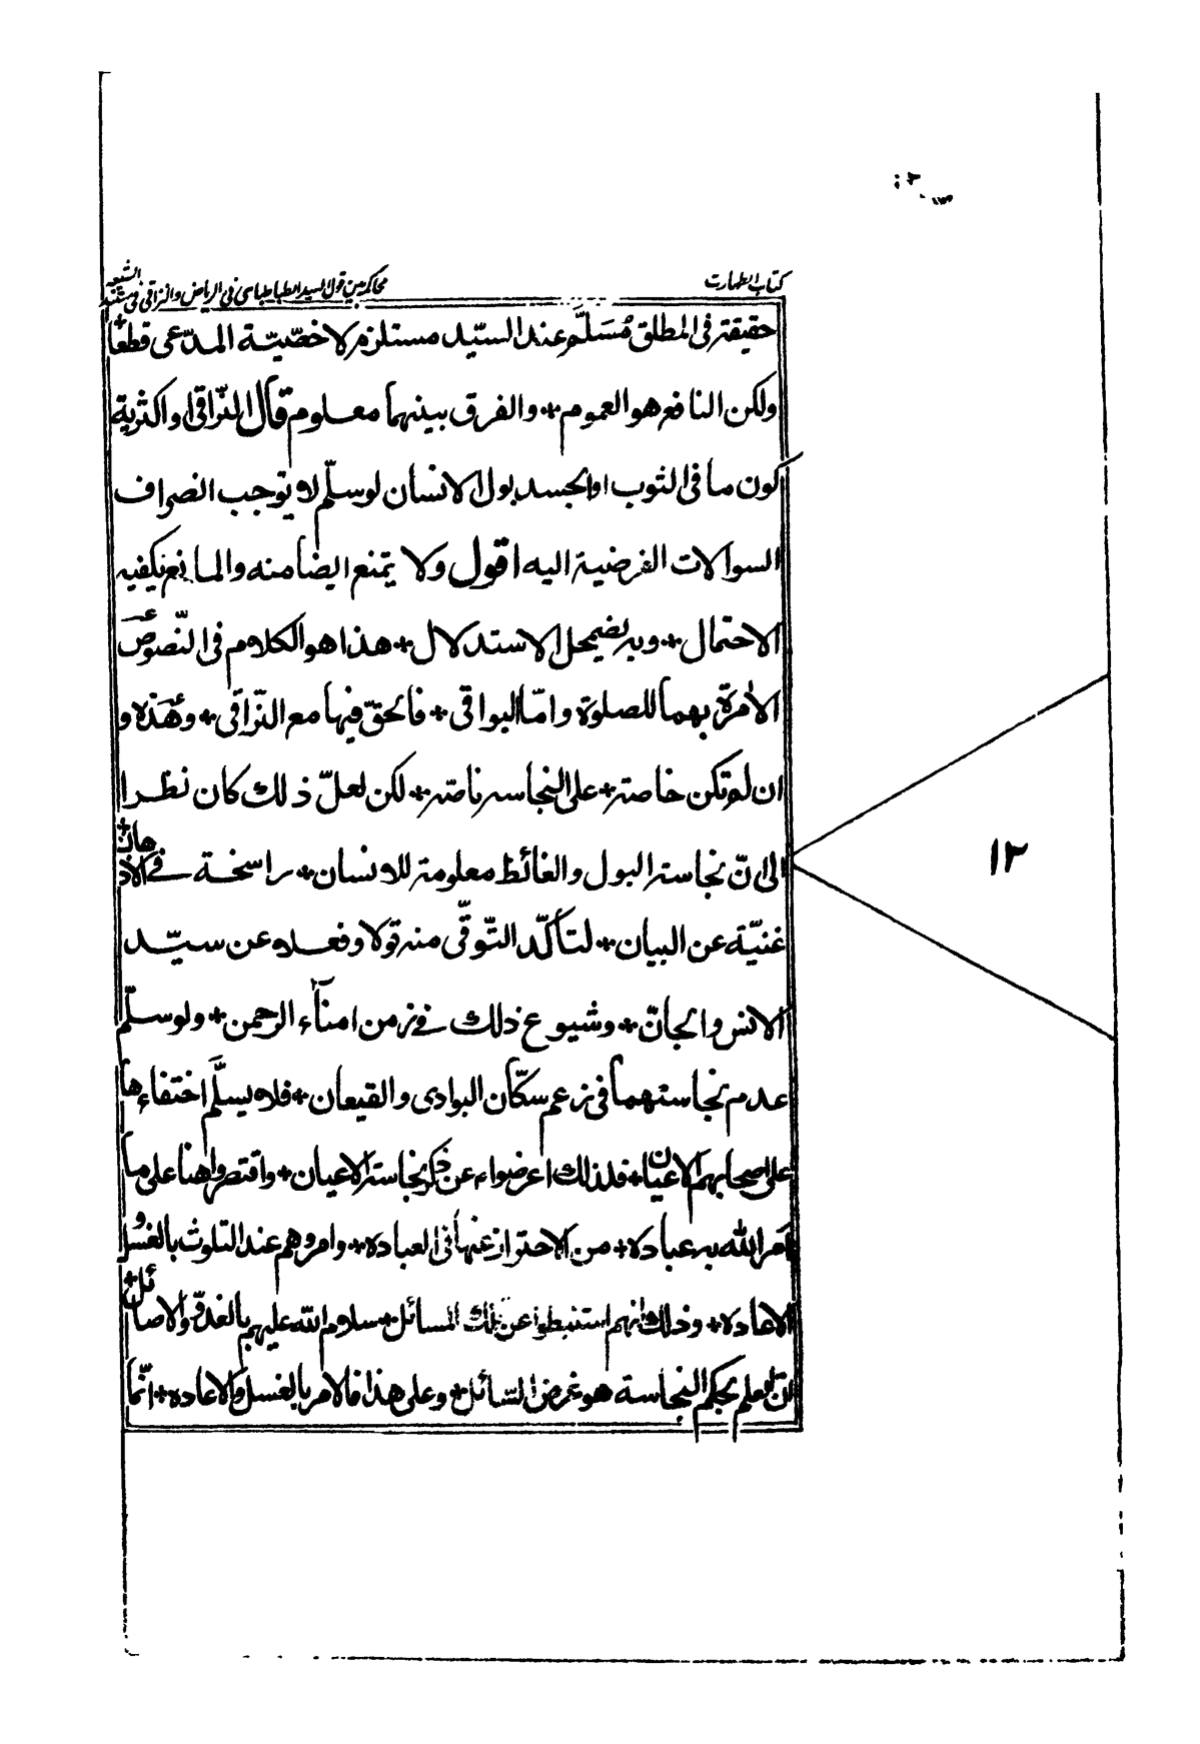 كتاب الطهارت
محاكمه بين قول السيد الطباطبائي في الرياض والنراقي في مستند الشيعه
حقيقته في المطلق مُسَلَّم عند السيّد مستلزم لاخصّيّة المدّعى قطعًا+
ولكن النافع هو العموم+ والفرق بينهما معلوم قال النّراقي واكثرية
كون ما في الثوب او الجسد بول الانسان لو سلّم لا يوجب انصراف
السوالات الفرضية اليه اقول ولا يمنع ايضا منه والمانع يكفيه
الاحتمال+ وبه يضمحل الاستدلال+ هذا هو الكلام في النّصوص
الآمرة بهما للصلوة وامّا البواقي+ فالحقّ فيها مع النّراقي+ وهذه و
ان لم تكن خاصته+ على النجاسه ناصّه+ لكن لعلّ ذلك كان نظرا
الى انّ نجاسته البول والغائظ معلومة للانسان+ راسخة في الاذهان+
غنيّة عن البيان+ لتأكّد التّوقّى منه قولا وفعلا عن سيّد
الانس والجانّ+ وشيوع ذلك في زمن امنآء الرحمن+ ولو سلّم
عدم نجاستهما في زعم سكّان البوادى والقيعان+ فلا يسلّم اختفاءها
على اصحابهم الاعيان+ فلذلك اعرضواء عن ذكر نجاسة الاعيان+ واقتصروا هنا على ما
امر الله به عباده+ من الاحتراز عنها في العباده+ وامروهم عند التلوث بالغسل و
الاعاده+ وذلك انهم استنبطوا عن تلك المسائل+ سلام الله عليهم بالغدوّ والاصائل+
انّ العلم بحكم النجاسة هو غرض السّائل+ وعلى هذا فالامر بالغسل والاعاده+ انّما
١٢